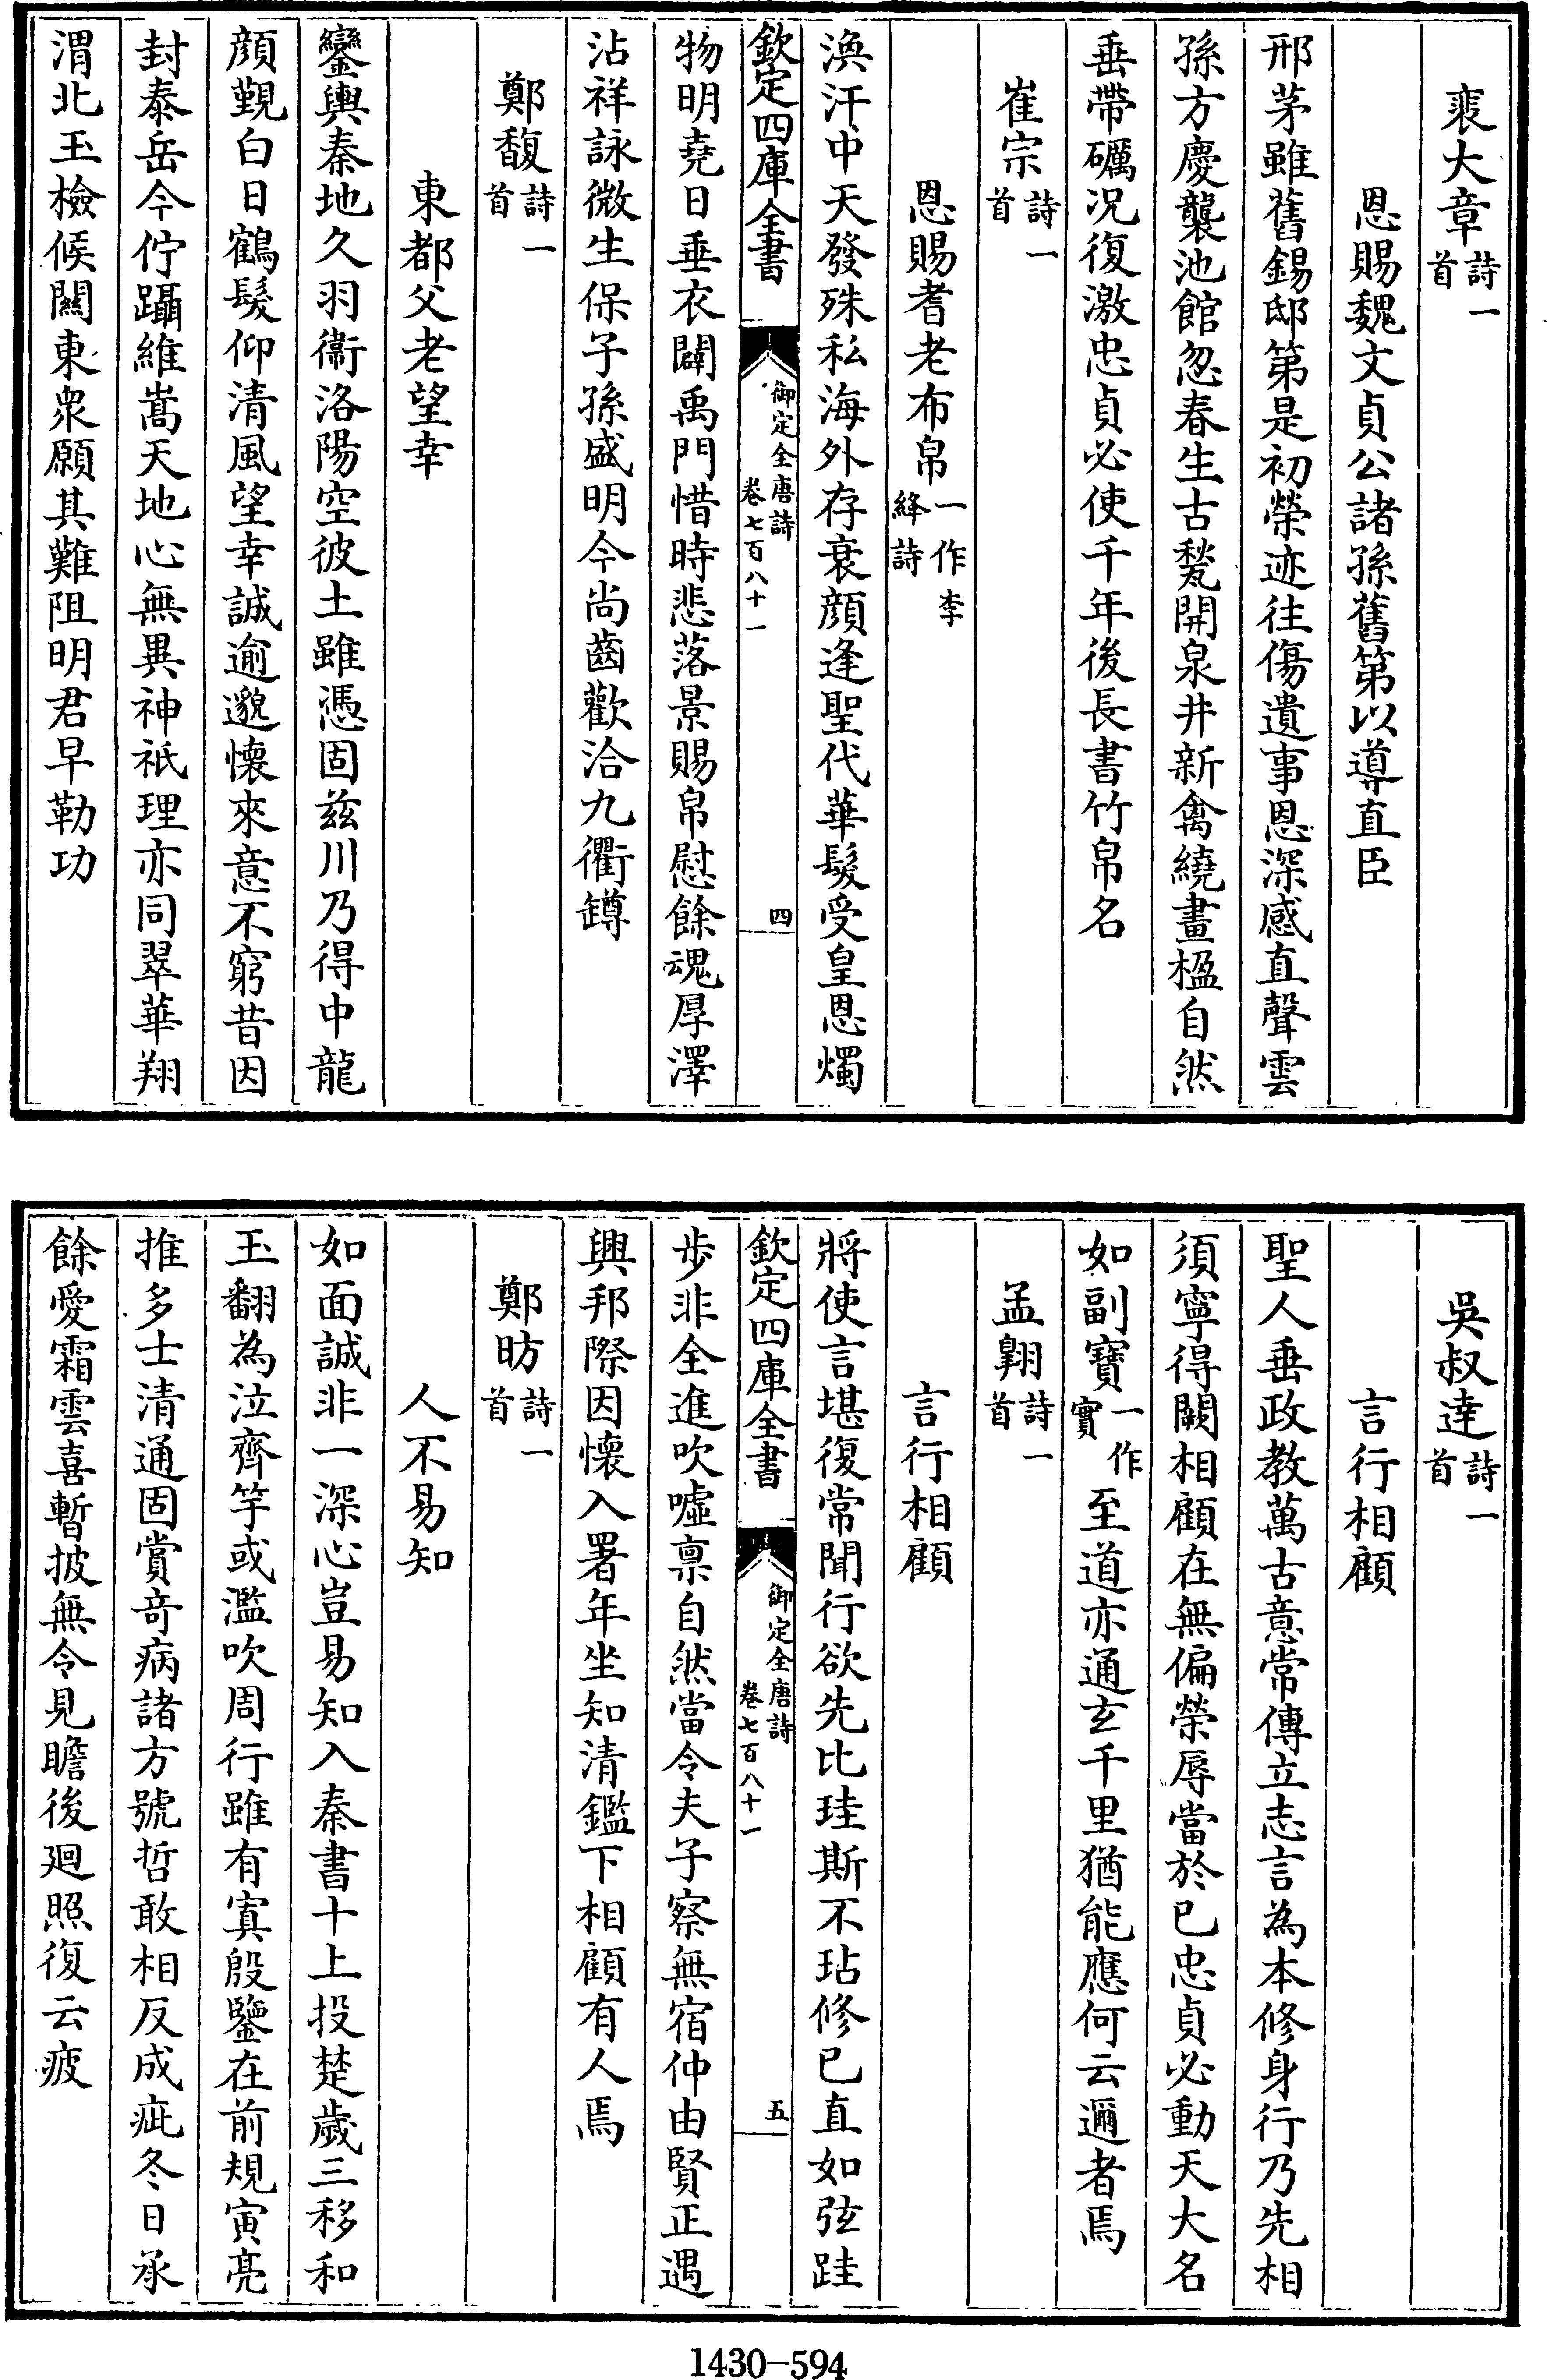 裵大章詩一首
恩賜魏文貞公諸孫舊第以導直臣
邢茅雖舊錫邸第是初榮迹往傷遺事恩深感直聲雲
孫方慶襲池館忽春生古甃開泉井新禽繞畫楹自然
垂帶礪况復激忠貞必使千年後長書竹帛名
崔宗詩一首
恩賜耆老布帛一作李絳詩
渙汗中天發殊私海外存衰顔逢聖代華髮受皇恩燭
欽定四庫全書
御定全唐詩卷七百八十一
四
物明堯日垂衣闢禹門惜時悲落景賜帛慰餘魂厚澤
沾祥詠微生保子孫盛明今尚齒歡洽九衢罇
鄭馥詩一首
東都父老望幸
鑾輿秦地久羽衞洛陽空彼土雖憑固兹川乃得中龍
顔覲白日鶴髮仰清風望幸誠逾邈懷來意不窮昔因
封泰岳今佇躡維嵩天地心無異神祇理亦同翠華翔
渭北玉檢候關東衆願其難阻明君早勒功
吳叔達詩一首
言行相顧
聖人垂政教萬古意常傳立志言為本修身行乃先相
須寧得闕相顧在無偏榮辱當於已忠貞必動天大名
如副寶一作實至道亦通玄千里猶能應何云邇者焉
孟翱詩一首
言行相顧
將使言堪復常聞行欲先比珪斯不玷修已直如弦跬
欽定四庫全書
御定全唐詩卷七百八十一
五
步非全進吹噓禀自然當令夫子察無宿仲由賢正遇
興邦際因懷入署年坐知清鑑下相顧有人焉
鄭昉詩一首
人不易知
如面誠非一深心豈易知入秦書十上投楚歲三移和
玉翻為泣齊竽或濫吹周行雖有寘殷鑒在前規寅亮
推多士清通固賞竒病諸方號哲敢相反成疵冬日承
餘愛霜雲喜暫披無令見瞻後廻照復云疲
1430-594